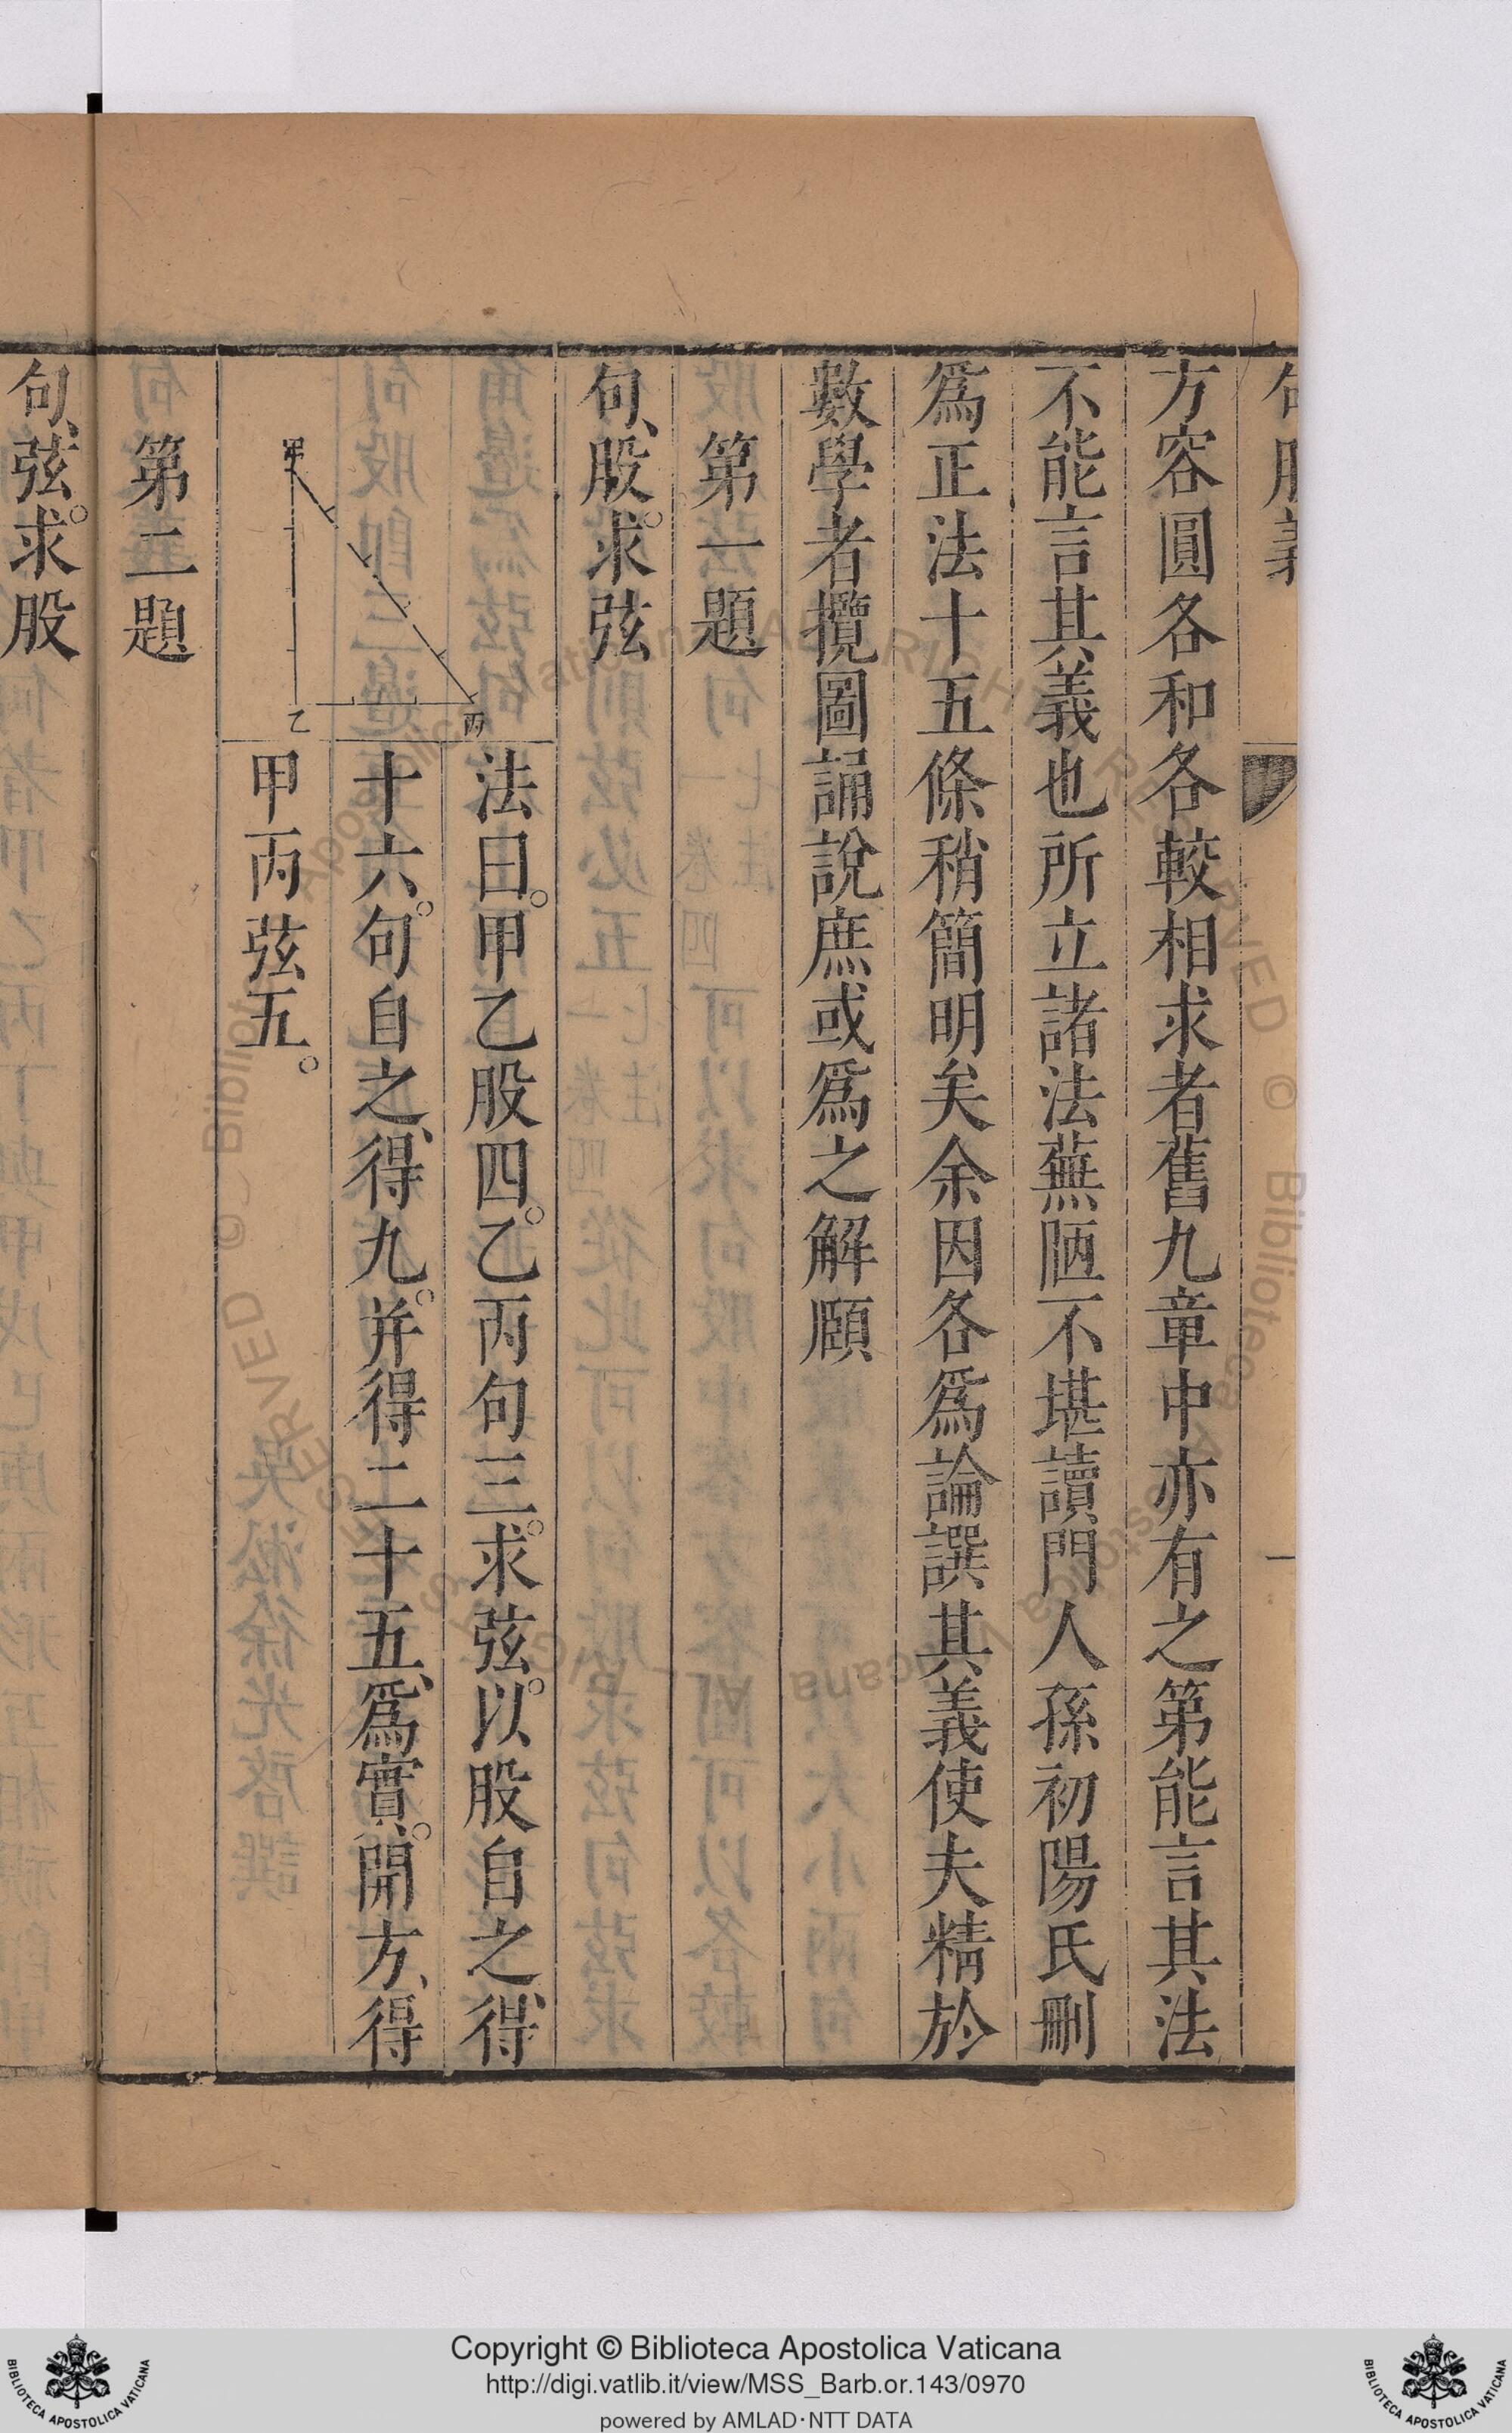 句股義
一
方容圓各和各較相求者舊九章中亦有之第能言其法
不能言其義也所立諸法蕪陋不堪讀門人孫初陽氏刪
爲正法十五條稍簡明矣余因各爲論譔其義使夫精於
數學者攬圖誦說庶或爲之解頤
第一題
句、股。求弦
甲
乙
丙
法曰。甲乙股四。乙丙句三。求弦。以股自之、得
十六。句自之、得九。并得二十五、爲實。開方、得
甲丙弦五。
第二題
句、弦。求股
Copyright © Biblioteca Apostolica Vaticana
http://digi.vatlib.it/view/MSS_Barb.or.143/0970
powered by AMLAD·NTT DATA
BIBLIOTECA APOSTOLICA VATICANA
BIBLIOTECA APOSTOLICA VATICANA